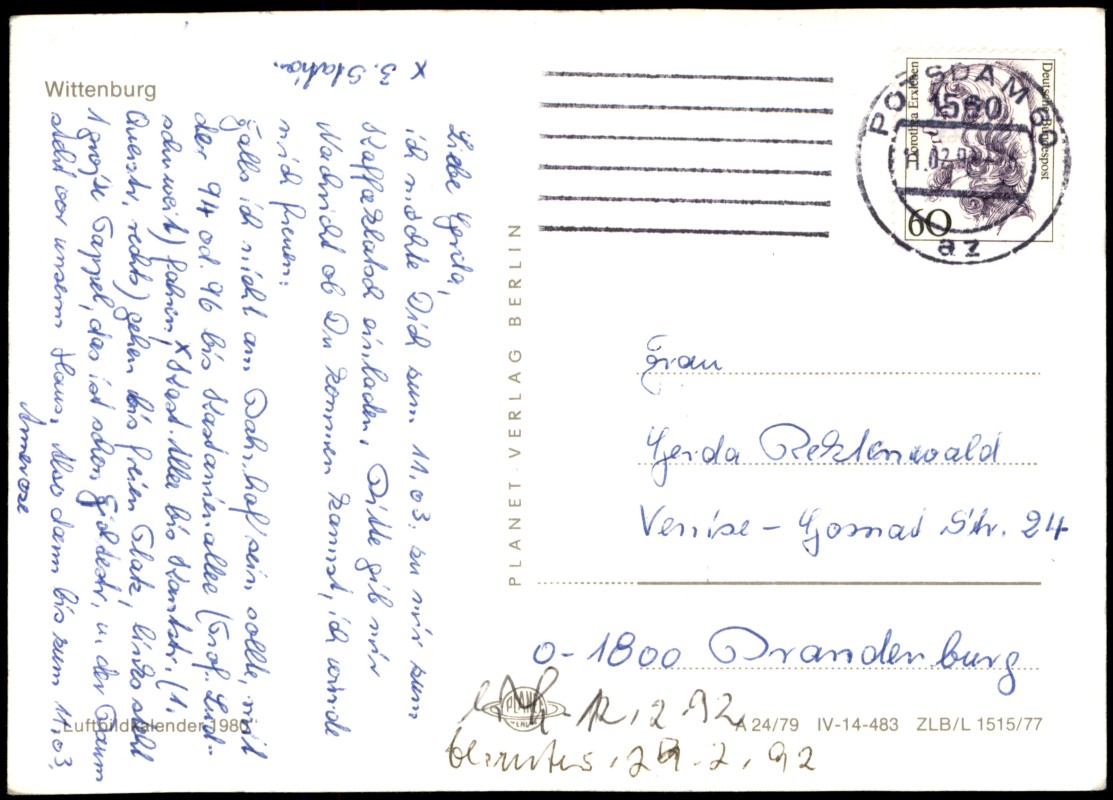 Wittenburg
x 3. Station
Liebe Gerda,
ich möchte Dich zum 11.03. zu mir zum
Kaffeeklatsch einladen, Bitte gib mir
Nachricht ob Du kommen kannst, ich würde
mich freuen.
Falls ich nicht am Bahnhof sein sollte, mit
der 94 od. 96 bis Kastanienallee (Großb. Lind-
fahren, x Kast. Allee bis Kantstr. (1.
Querstr. rechts) gehen bis freien Platz, links steht
1 große Pappel, das ist schon u. der Baum
steht vor unserm Haus, Also dann bis zum 11.03.
Annerose
"Luftbildkalender 1980"
PLANET-VERLAG BERLIN
POTSDAM 60
1560
az
Dorothea Erxleben
Deutsche Bundespost
60
Frau
Gerda Rektenwald
Venise-Gosnat Str. 24
0-1800 Brandenburg
PLANET
VERLAG
A 24/79 IV-14-483 ZLB/L 1515/77
12.2.92
29.2.92